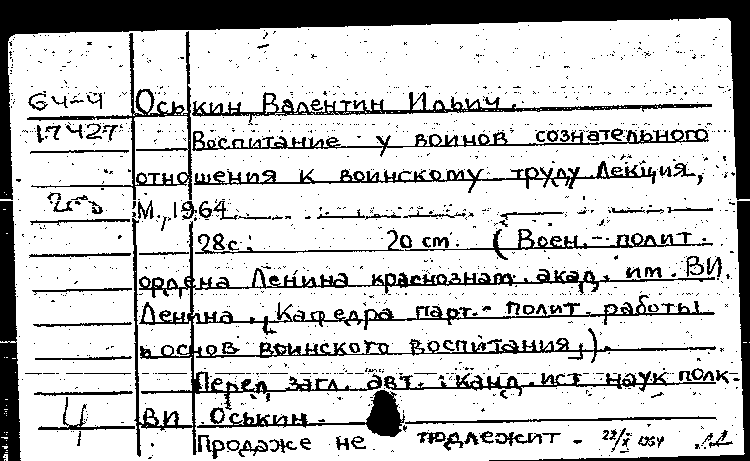 64-4 Оськин, Валентин Ильич.
17427
Воспитание у воинов сознательного
отношения к воинскому труду Лекция,
М., 1964
28с. 20 cm. (Воен.-полит.
ордена Ленина краснознам. акад. им. В.И.
Ленина. Кафедра парт.-полит. работы
и основ воинского воспитания,).
Перед загл. авт.: канд. ист наук полк.
4 ВИ Оськин.
Продаже не подлежит - 22/X 1964